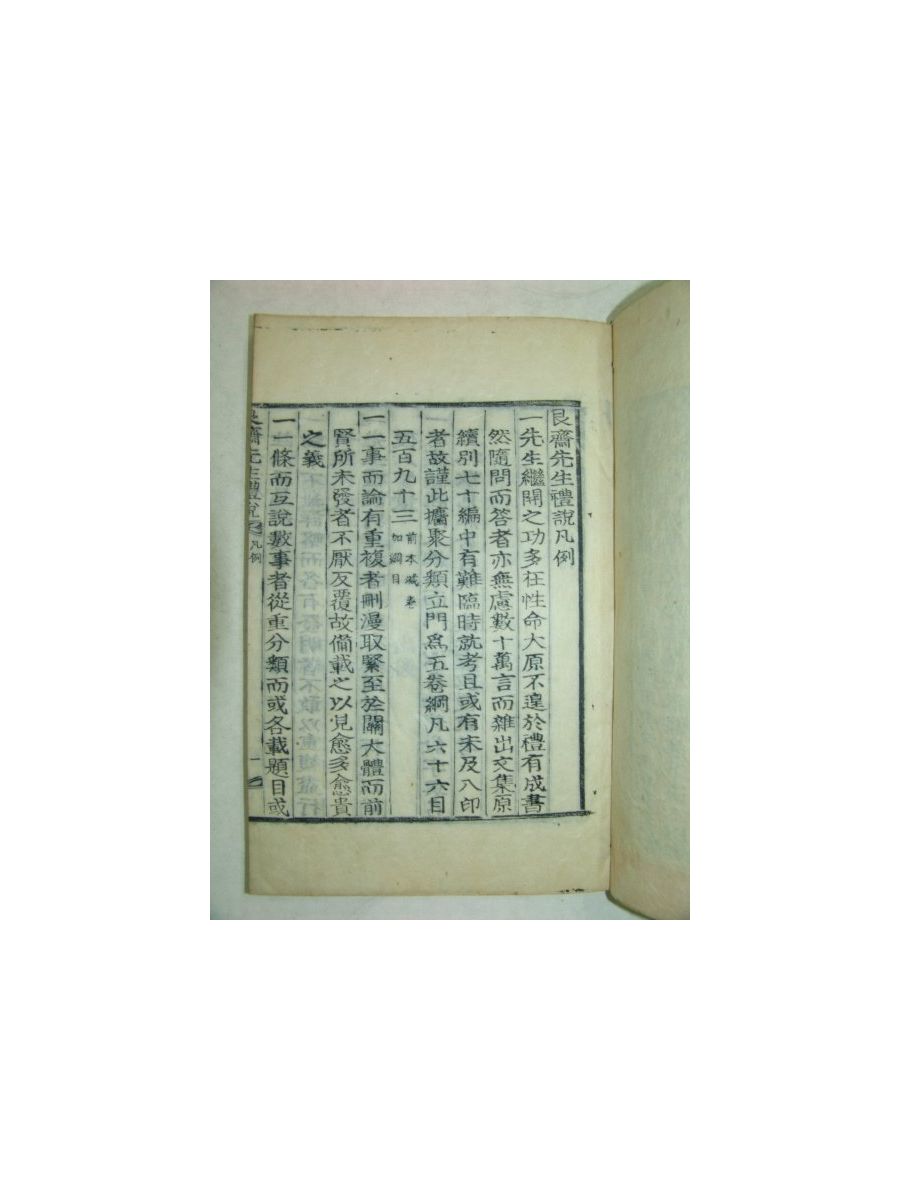 艮齋先生禮說凡例
一先生繼開之功多在性命大原不遑於禮有成書
然隨問而答者亦無慮數十萬言而雜出文集原
續別七十編中有難臨時就考且或有未及入印
者故謹此摭聚分類立門爲五卷綱凡六十六目
五百九十三
前本減卷
加綱目
一一事而論有重複者刪漫取緊至於關大體而前
賢所未發者不厭反覆故備載之以見愈多愈貴
之義
一一條而互說數事者從重分類而或各載題目或
艮齋先生禮說 凡例
一